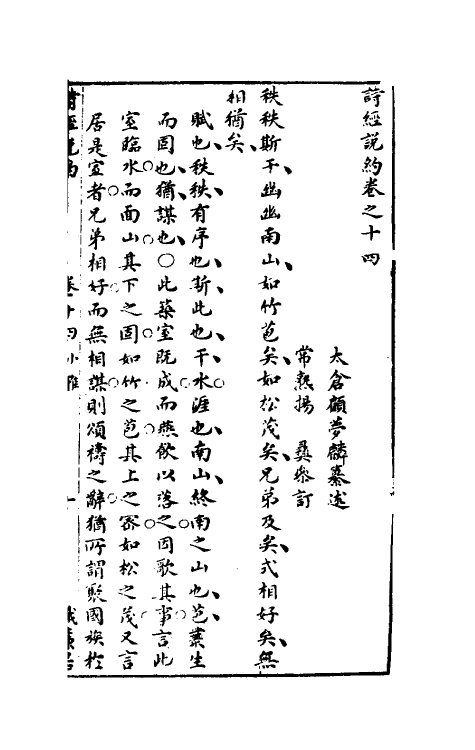 詩經說約卷之十四
太倉顧夢麟纂述
常熟楊彝叅訂
秩秩斯干幽幽南山如竹苞矣如松茂矣兄弟及矣式相好矣無
相猶矣
賦也秩秩有序也斯此也干水涯也南山終南之山也苞叢生
而固也猶謀也○此築室既成而燕飲以落之因歌其事言此
室臨水而面山其下之固如竹之苞其上之密如松之茂又言
居是室者兄弟相好而無相謀則頌禱之辭猶所謂聚國族於
詩經說約 卷十四小雅 一